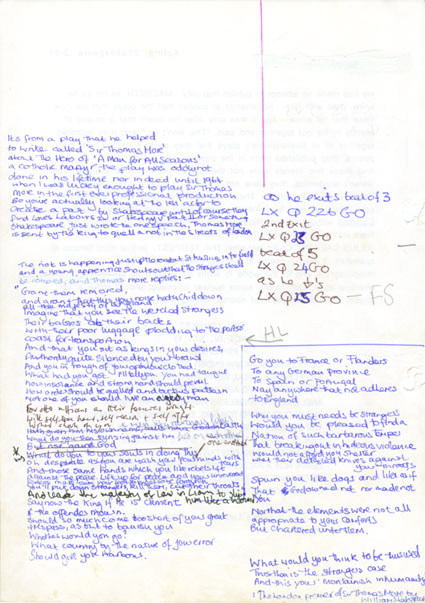 Its from a play that he helped
to write called 'Sir Thomas More'
about the hero of 'A Man for All Seasons'
a catholic martyr, the play was oddly not
done in his lifetime nor indeed until 1964
when I was lucky enough to play Sir Thomas
More in the first ever professional production
So your actually looking at the last actor to
create a part by Shakespeare until of course they
find Love's Labours
Shakespeare Just wrote the one speech, Thomas More
is sent by the king to quell a riot in the streets of London
The riot is happening Just up the road at St
and a young apprentice shouts out that the strangers should
be removed, and Thomas more replies: -
"Grant them removed,
and grant that this your noise hath Chid down
all the majesty of England
Imagine that you see the wretched strangers
Their babies at their backs
With their poor luggage plodding to the ports
coast for transportation
And that you sit as kings in your desires,
Authority quite silenced by your brawl
And you in rough of your opinions clothed
What had you got? I'll tell you, you had taught
How insolence and strong hand should prevail
How order should be quelled and by this pattern
Not one of you should live an aged man
For other ruffians as their fancies wrought
With self same hand, self reasons & self right
Would shark on you
What do you to your souls in doing this
Oh desperate as you are wash your foul minds with tears
And those same hands which you like rebels lift
against the peace lift up for peace and your
And lead the majesty of law in liom to slip him like a hound
Say now the King if he is clement
If the offenders mourn.
Should so much come too short of your great
trespass, as but to banish you
Whither would you go?
What country by the nature of your error
Should give you harbour.
as he exits beat of 3
LX Q 22G GO
2nd Exit
LX Q 23 GO
beat of 5
LX Q 24 GO
as he ↓'s
LX Q 25 GO — FS
HL
Go you to France or Flanders
To any German province
To Spain or Portugal
Nay anywhere that not adheres
to England
Why you must needs be strangers
Would you be pleased to find a
Nation of such barbarous temper
That breaking out in hideous violence
Would not afford you shelter
whet their detested knives against
your throats
Spurn you like dogs and like as if
That God owned not nor made not
you
Nor that the elements were not all
appropriate to your comforts
But Chartered unto them.
What would you think to be thus used
This is the strangers case
And this your mountainish inhumanity